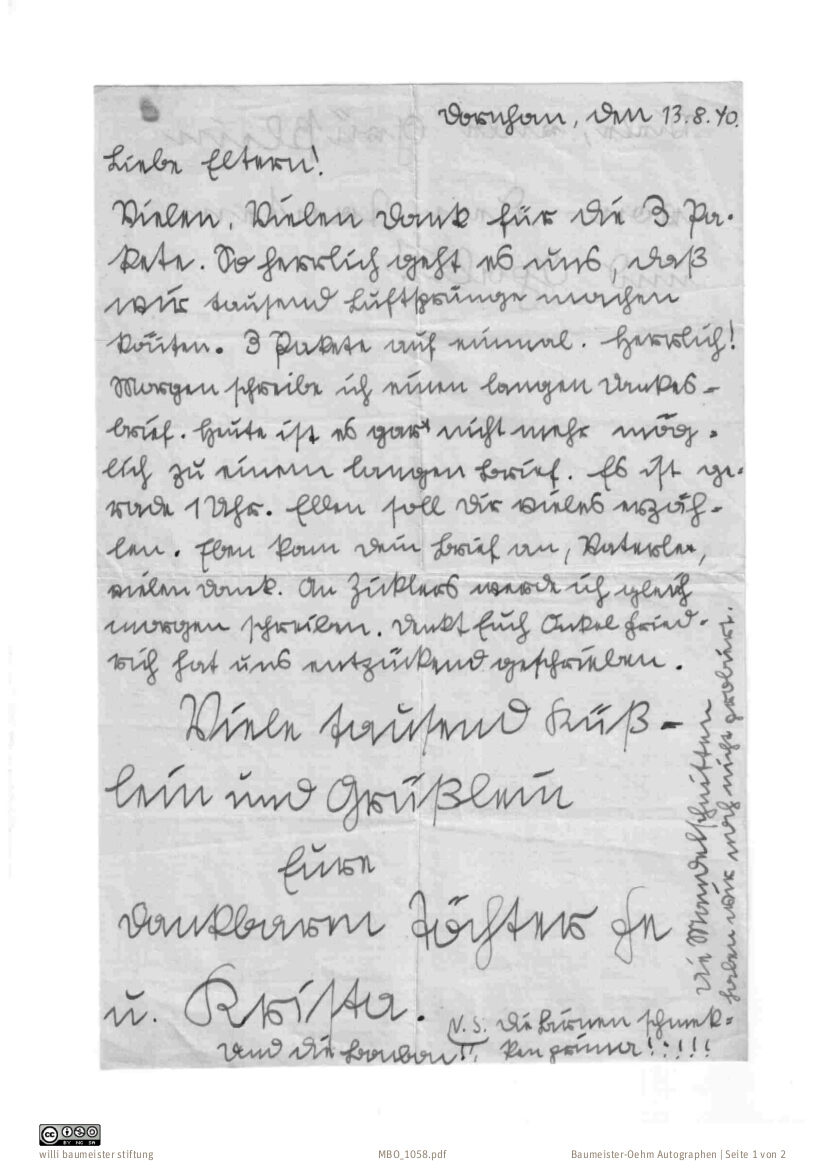 Dornhan, den 13.8.40.
Liebe Eltern!
Vielen, Vielen Dank für die 3 Pa-
kete. So herrlich geht es uns, daß
wir tausend Luftsprünge machen
kön̄ten. 3 Pakete auf einmal. Herrlich!
Morgen schreibe ich einen langen Dankes-
brief. Heute ist es gar nicht mehr mög-
lich zu einem langen Brief. Es ist ge-
rade 1 Uhr. Ellen soll Dir vieles erzäh-
len. Eben kam dein Brief an, Vaterle,
vielen Dank. An Zücklers werde ich gleich
morgen schreiben. Denkt Euch Onkel Fried-
rich hat uns entzückend geschrieben.
Viele tausend Küß-
lein und Grüßlein
Eure
dankbaren Töchter Fe
u. Krista.
N.S. Die Birnen schmek-
ken prima!!!!!
Und die Bonbon!!
Die Mandelschnitten
haben wir noch nicht probiert.
CC BY NC SA
willi baumeister stiftung
MBO_1058.pdf
Baumeister-Oehm Autographen | Seite 1 von 2